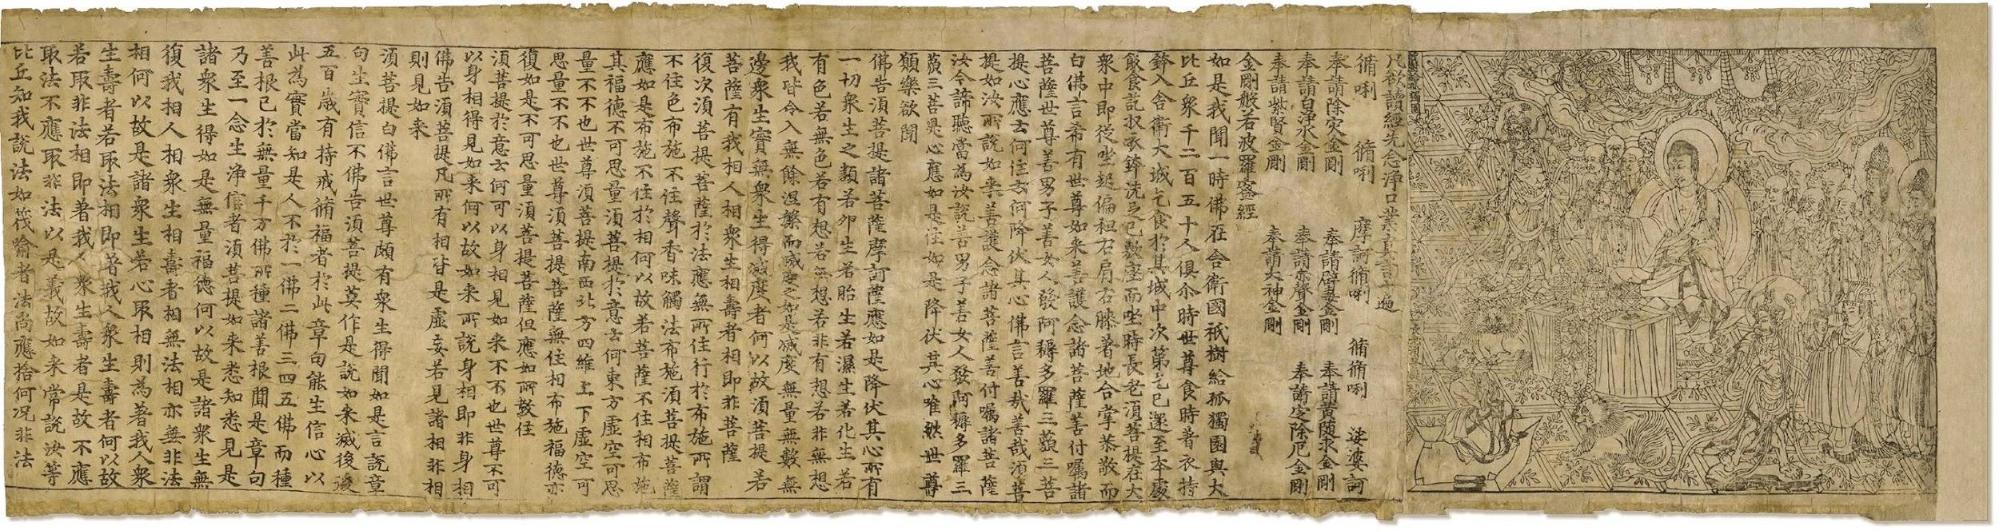 祇樹給孤獨園
凡欲讀經先念淨口業真言一遍
脩唎 脩唎 摩訶脩唎 脩脩唎 娑婆訶
奉請除灾金剛 奉請辟毒金剛 奉請黄随求金剛
奉請白淨水金剛 奉請赤聲金剛 奉請定除厄金剛
奉請紫賢金剛 奉請大神金剛
金剛般若波羅蜜經
如是我聞一時佛在舍衛國祇樹給孤獨園與大
比丘衆千二百五十人俱尒時世尊食時着衣持
鉢入舍衛大城乞食於其城中次第乞已還至本處
飯食訖収衣鉢洗足已敷座而坐時長老須菩提在大
衆中即從坐起偏袒右肩右膝着地合掌恭敬而
白佛言希有世尊如来善護念諸菩薩善付囑諸
菩薩世尊善男子善女人發阿耨多羅三藐三菩
提心應云何住云何降伏其心佛言善㢤善㢤須菩
提如汝所說如来善護念諸菩薩善付囑諸菩薩
汝今諦聽當為汝說善男子善女人發阿耨多羅三
藐三菩提心應如是住如是降伏其心唯然世尊
願樂欲聞
佛告須菩提諸菩薩摩訶薩應如是降伏其心所有
一切衆生之類若卵生若胎生若濕生若化生若
有色若無色若有想若無想若非有想若非無想
我皆令入無餘涅槃而滅度之如是滅度無量無數無
邊衆生實無衆生得滅度者何以故須菩提若
菩薩有我相人相衆生相壽者相即非菩薩
復次須菩提菩薩於法應無所住行於布施所謂
不住色布施不住聲香味觸法布施須菩提菩薩
應如是布施不住於相何以故若菩薩不住相布施
其福德不可思量須菩提於意云何東方虛空可思
量不不也世尊須菩提南西北方四維上下虛空可
思量不不也世尊須菩提菩薩無住相布施福德亦
復如是不可思量須菩提菩薩但應如所教住
須菩提於意云何可以身相見如来不不也世尊不可
以身相得見如来何以故如来所說身相即非身相
佛告須菩提凡所有相皆是虛妄若見諸相非相
則見如来
須菩提白佛言世尊頗有衆生得聞如是言說章
句生實信不佛告須菩提莫作是說如来滅後後
五百歲有持戒脩福者於此章句能生信心以
此為實當知是人不於一佛二佛三四五佛而種
善根已於無量千万佛所種諸善根聞是章句
乃至一念生淨信者須菩提如来悉知悉見是
諸衆生得如是無量福德何以故是諸衆生無
復我相人相衆生相壽者相無法相亦無非法
相何以故是諸衆生若心取相則為著我人衆
生壽者若取法相即著我人衆生壽者何以故
若取非法相即著我人衆生壽者是故不應
取法不應取非法以是義故如来常說汝等
比丘知我說法如筏喻者法尚應捨何况非法